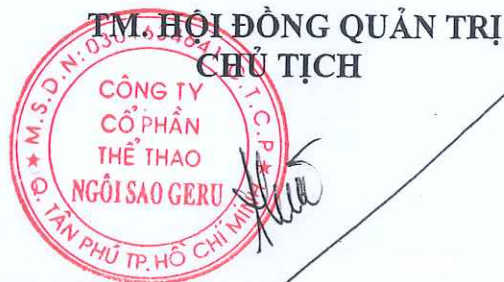 TM. HỘI ĐỒNG QUẢN TRỊ
CHỦ TỊCH
M.S.D.N: C.T.C.P
CÔNG TY
CỔ PHẦN
THỂ THAO
NGÔI SAO GERU
Q. TÂN PHÚ TP. HỒ CHÍ MINH